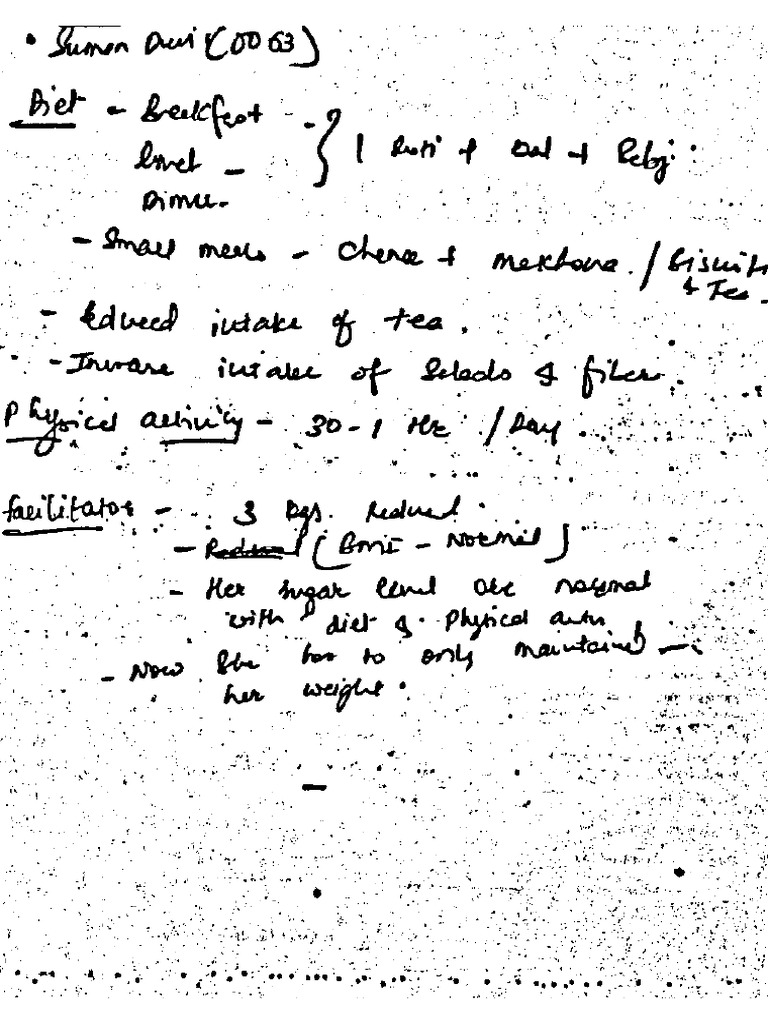 • Suman Devi (0063)
Diet - Breakfast -
Lunch - } 1 Roti + Dal + Sabji.
Dinner -
- Small meals - Chana + Makhana / Biscuit
& Tea -
- Reduced intake of tea.
- Increase intake of Salads & fiber.
Physical activity - 30-1 Hr /Day.
Facilitator - 3 kgs. Reduced.
- (BMI - Normal)
- Her sugar level are normal
with diet & Physical activ
- Now She has to only maintained -
her weight.